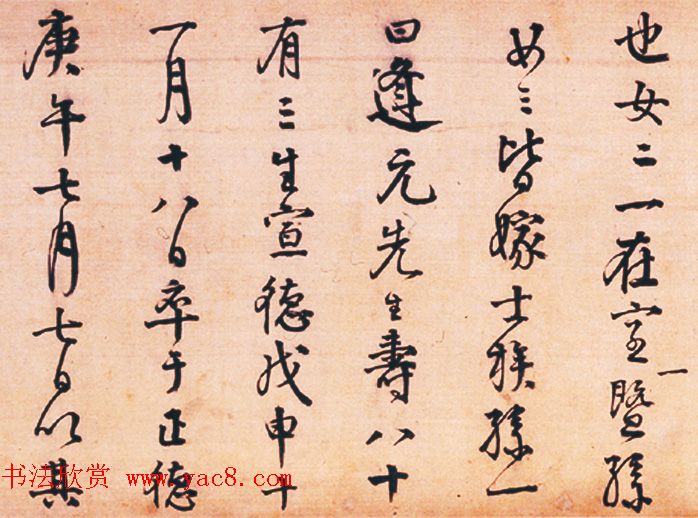 也女二一在室一暨孫
女三皆嫁士族孫一
曰逢元先生壽八十
有三生宣德戊申十
一月十八日卒于正德
庚午七月七日以其
书法欣赏 www.yac8.com